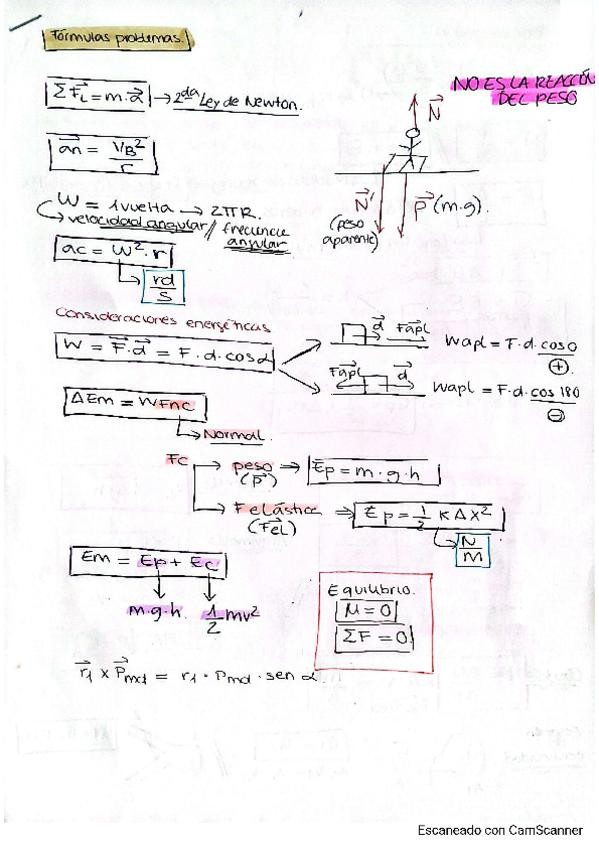 Fórmulas problemas.
NO ES LA REACCIÓN
DEL PESO
ΣF⃗i = m·a⃗ → 2da Ley de Newton.
N⃗
a⃗n = VB²/r
N⃗' (peso aparente)
P⃗ (m·g).
W = 1 vuelta → 2πR.
velocidad angular // frecuencia angular
ac = W²·r
rd/s
Consideraciones energéticas
W = F⃗·d⃗ = F·d·cosα
d⃗ F⃗apl
Wapl = F·d·cos0
+
F⃗apl d⃗
Wapl = F·d·cos 180
−
ΔEm = WFnc
Normal.
Fc
peso (P⃗) ⇒ Ep = m·g·h
F elástica (F⃗el) ⇒ Ep = 1/2 K ΔX²
N/m
Em = Ep + Ec
m·g·h. 1/2 mv²
Equilibrio.
M = 0
ΣF = 0
r⃗1 × P⃗md = r1 · Pmd · sen α.
Escaneado con CamScanner